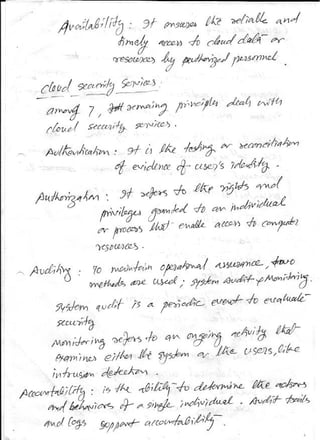 Availability : It ensures the reliable and
timely access to cloud data or
resources by authorized personnel.
cloud security services :
among 7, remaining principles deals with
cloud security services.
Authentication : It is the testing or reconciliation
of evidence of user's identity.
Authorization : It refers to the rights and
privileges granted to an individual
or process that enable access to computer
resources.
Auditing : To maintain operational assurance, two
methods are used ; System Audit & Monitoring.
System audit is a periodic event to evaluate
security
Monitoring refers to an ongoing activity that
examines either the system or the users, like
intrusion detection.
Accountability : is the ability to determine the actions
and behaviors of a single individual. Audit trails
and logs support accountability.